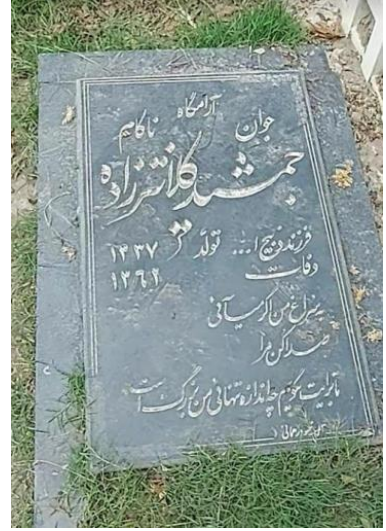 آرامگاه
جوان ناکام
جمشید کلانترزاده
فرزند ذبیح ا... تولد ۱۳۳۷
وفات ۱۳۶۹
به سراغ من اگر میآئی
صدا کن مرا
تا برایت بگویم چه اندازه تنهائی من بزرگ است